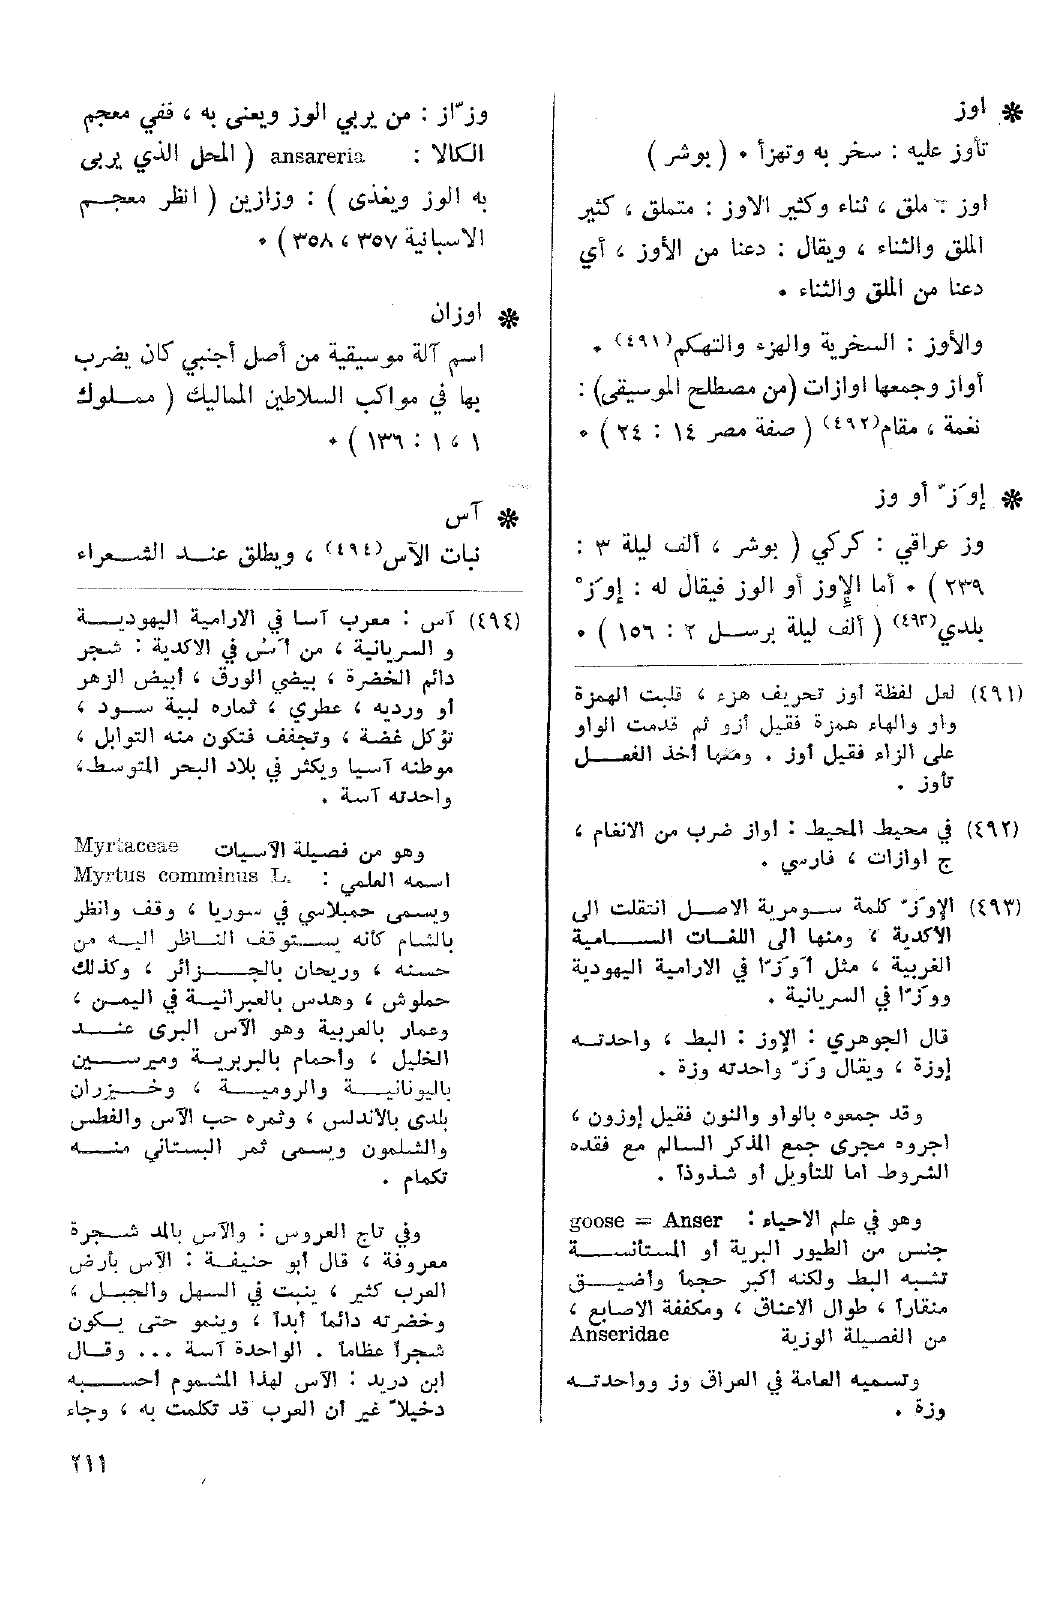 ❋ اوز
تأوز عليه : سخر به وتهزأ • ( بوشر )
اوز : ملق ، ثناء وكثير الاوز : متملق ، كثير
الملق والثناء ، ويقال : دعنا من الأوز ، أي
دعنا من الملق والثناء •
والأوز : السخرية والهزء والتهكم(٤٩١) •
أواز وجمعها اوازات (من مصطلح الموسيقى) :
نغمة ، مقام(٤٩٢) ( صفة مصر ١٤ : ٢٤ ) •
❋ إوَزّ أو وز
وز عراقي : كركي ( بوشر ، ألف ليلة ٣ :
٢٣٩ ) • أما الإوز أو الوز فيقال له : إوَزْ
بلدي(٤٩٣) ( ألف ليلة برسـل ٢ : ١٥٦ ) •
(٤٩١) لعل لفظة أوز تحريف هزء ، قلبت الهمزة
واو والهاء همزة فقيل أزو ثم قدمت الواو
على الزاء فقيل أوز . ومنها أخذ الفعـــل
تأوز .
(٤٩٢) في محيط المحيط : أواز ضرب من الانغام ،
ج اوازات ، فارسي .
(٤٩٣) الإوَزّ كلمة سـومرية الاصـل انتقلت الى
الأكدية ، ومنها الى اللغـات الســامية
الغربية ، مثل أوَزّا في الارامية اليهودية
ووَزّا في السريانية .
قال الجوهري : الإوز : البط ، واحدتـه
إوزة ، ويقال وَزّ واحدته وزة .
وقد جمعوه بالواو والنون فقيل إوزون ،
اجروه مجرى جمع المذكر السالم مع فقده
الشروط اما للتأويل أو شذوذاً .
وهو في علم الاحياء : goose = Anser
جنس من الطيور البرية أو المستأنســة
تشبه البط ولكنه أكبر حجماً وأضيـــق
منقاراً ، طوال الاعناق ، ومكففة الاصابع ،
من الفصيلة الوزية Anseridae
وتسميه العامة في العراق وز وواحدتــه
وزة .
وزّاز : من يربي الوز ويعنى به ، ففي معجم
الكالا : ansareria ( المحل الذي يربى
به الوز ويغذى ) : وزازين ( انظر معجــم
الاسبانية ٣٥٧ ، ٣٥٨ ) •
❋ اوزان
اسم آلة موسيقية من أصل أجنبي كان يضرب
بها في مواكب السلاطين المماليك ( ممـلوك
١ ، ١ : ١٣٦ ) •
❋ آس
نبات الآس(٤٩٤) ، ويطلق عنـد الشـعراء
(٤٩٤) آس : معرب آسا في الارامية اليهوديـــة
و السريانية ، من آسُ في الاكدية : شجر
دائم الخضرة ، بيضي الورق ، أبيض الزهر
أو ورديه ، عطري ، ثماره لبية سـود ،
تؤكل غضة ، وتجفف فتكون منه التوابل ،
موطنه آسيا ويكثر في بلاد البحر المتوسط،
واحدته آسة .
وهو من فصيلة الآسيات Myrtaceae
اسمه العلمي : Myrtus comminus L.
ويسمى حمبلاسي في سوريا ، وقف وانظر
بالشام كانه يسـتوقف النـاظر اليـه من
حسنه ، وريحان بالجــزائر ، وكذلك
حملوش ، وهدس بالعبرانيـة في اليمـن ،
وعمار بالعربية وهو الآس البرى عنــد
الخليل ، وأحمام بالبربريــة وميرســـين
باليونانيـــة والروميـــة ، وخـيزران
بلدى بالأندلس ، وثمره حب الآس والفطس
والشلمون ويسمى ثمر البستاني منـــه
تكمام .
وفي تاج العروس : والآس بالمد شــجرة
معروفة ، قال أبو حنيفـة : الآس بأرض
العرب كثير ، ينبت في السهل والجبـل ،
وخضرته دائماً أبداً ، وينمو حتى يـكون
شجراً عظاماً . الواحدة آسة ... وقــال
ابن دريد : الآس لهذا المشموم أحســبه
دخيلاً غير أن العرب قد تكلمت به ، وجاء
٢١١